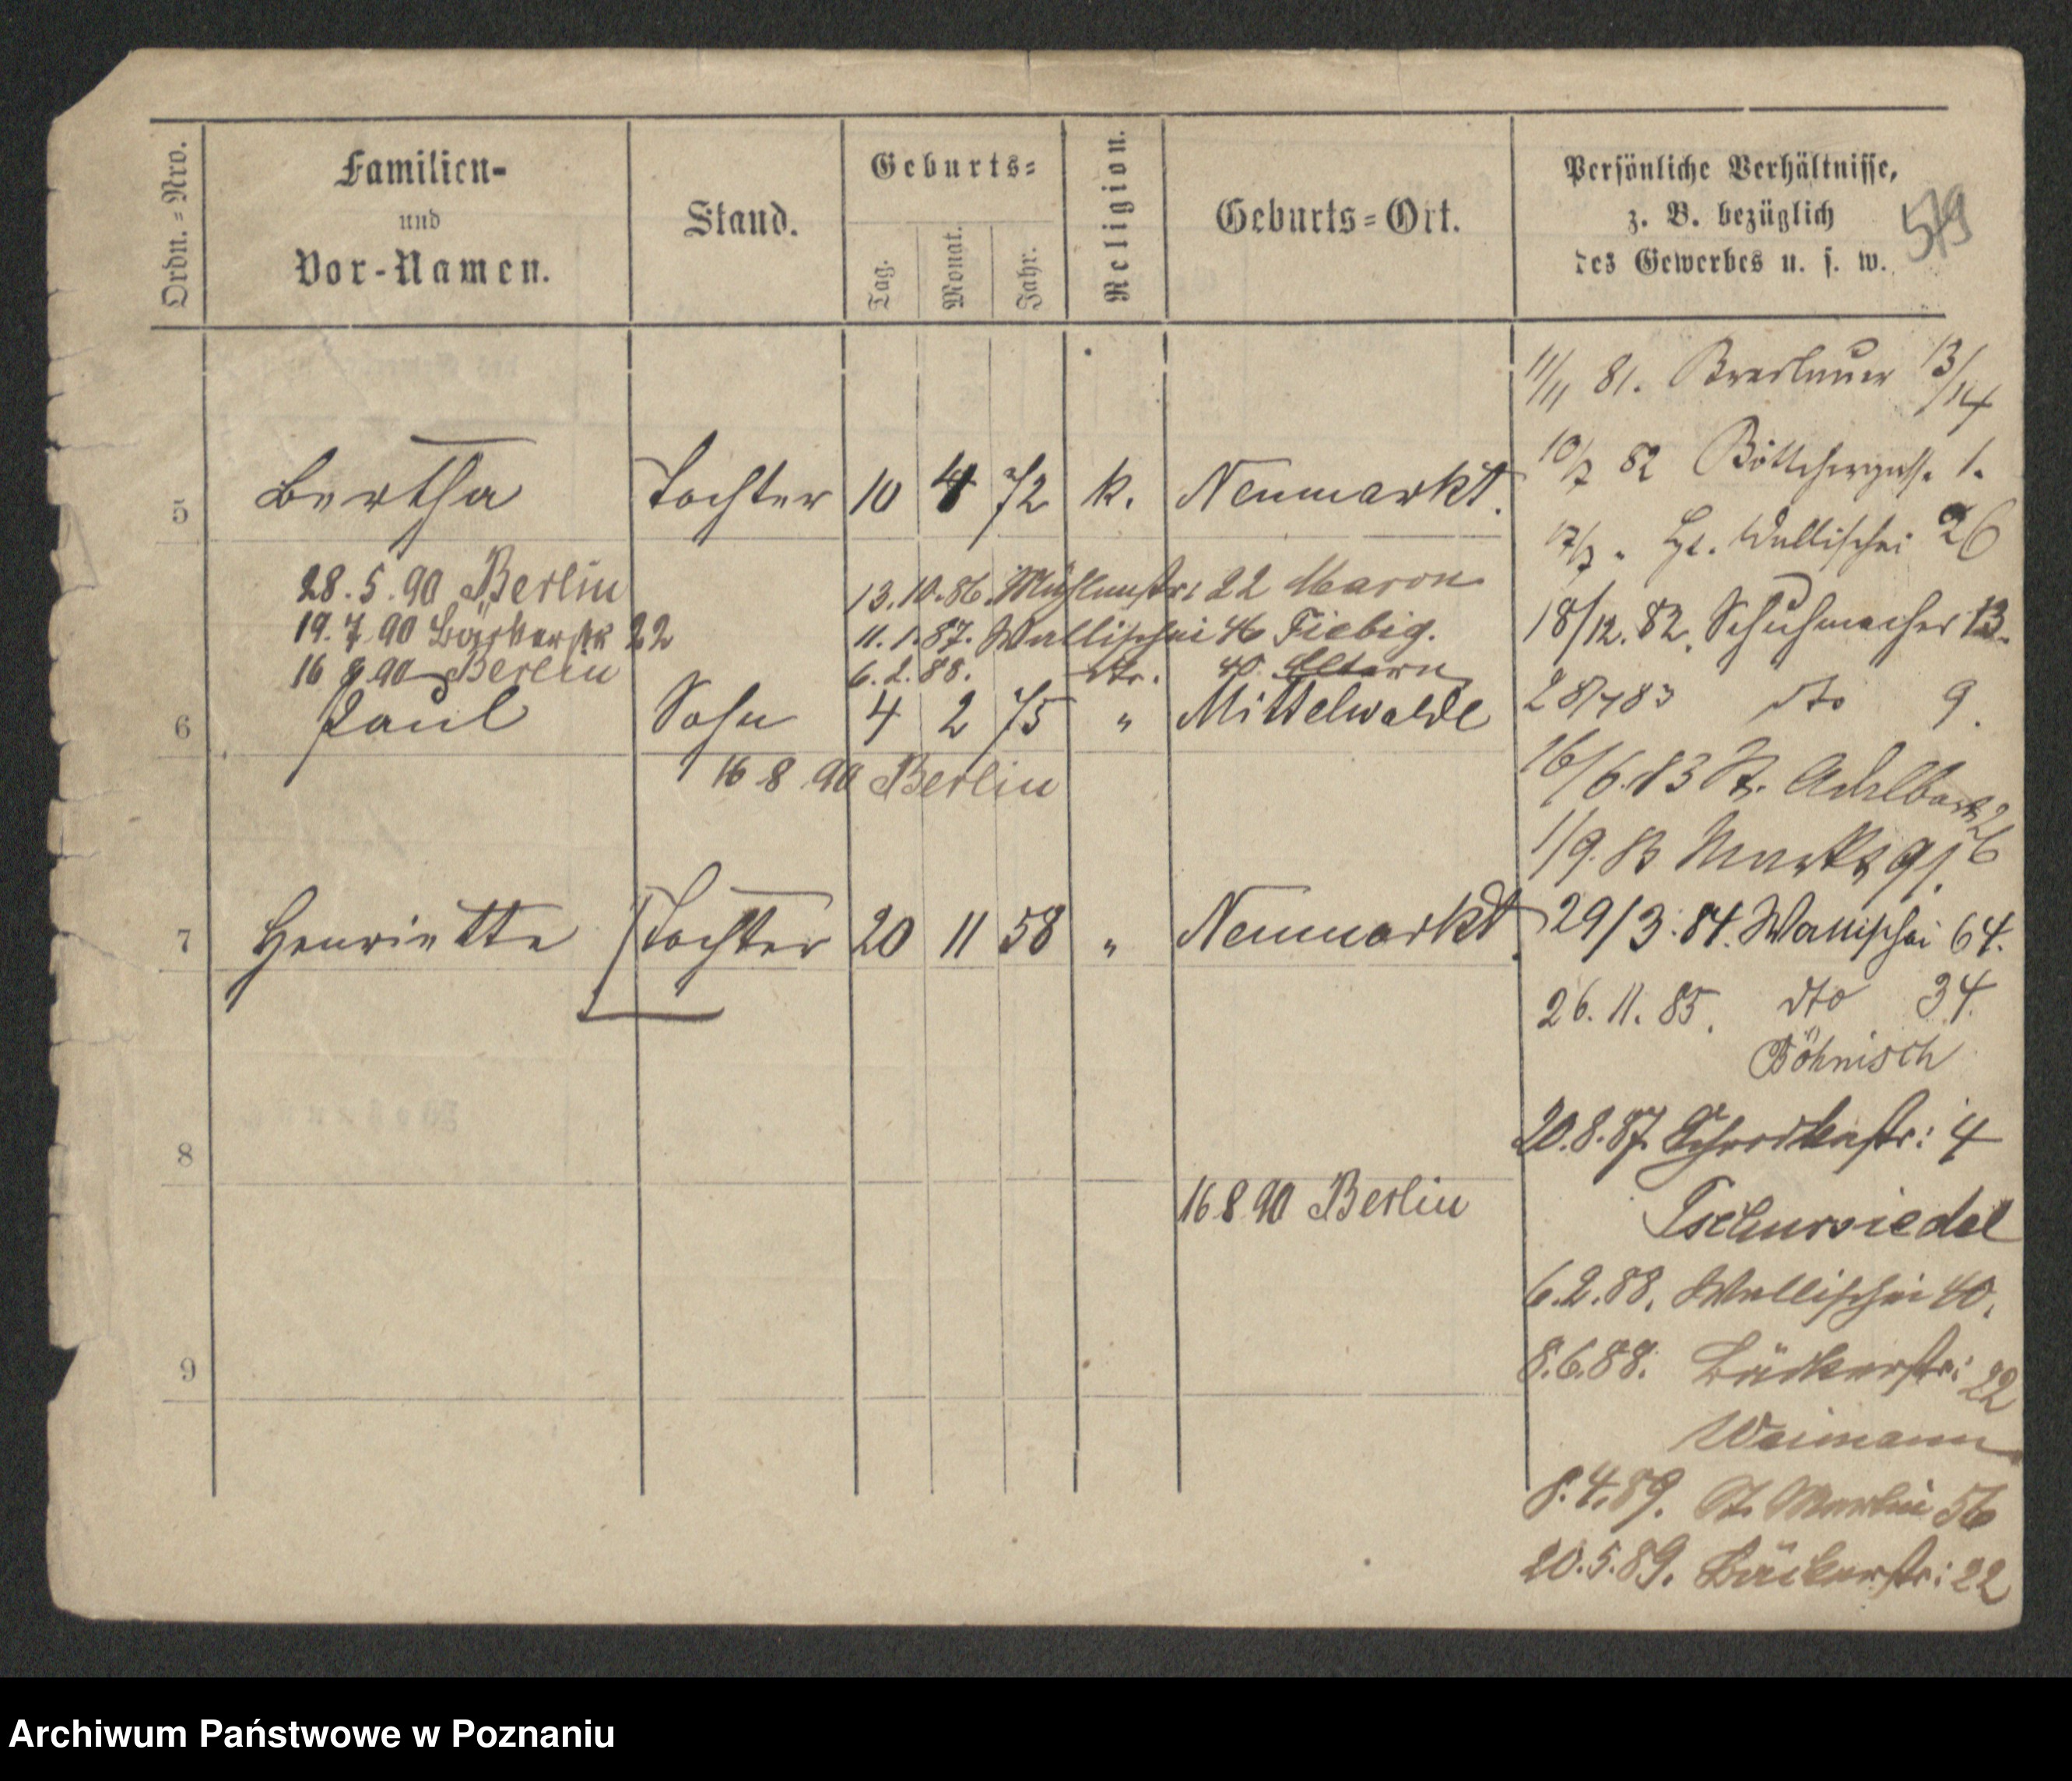 Ordn.=Nro.
Familien-
und
Vor-Namen.
Stand.
Geburts=
Tag.
Monat.
Jahr.
Religion.
Geburts=Ort.
Persönliche Verhältnisse,
z. B. bezüglich
des Gewerbes u. s. w.
519
5 Bertha Tochter 10 4 72 k. Neumarkt.
28.5.90 Berlin
19.7.90 Bäckerstr 22
16 8 90 Berlin
13.10.86. Mühlenstr: 22 Maron
11.1.87. Wallischei 46 Fiebig.
6.2.88. dto. 40. Eltern
6 Paul Sohn 4 2 75 " Mittelwalde
16 8 90 Berlin
7 Henriette Tochter 20 11 58 " Neumarkt.
8
16 8 90 Berlin
9
11/11 81. Breslauer 13/14
10/7 82 Böttchergass. 1.
17/7 " Wallischei 26
18/12. 82. Schuhmacher 13.
28/4 83 dto 9.
16/6. 83 St. Adalbert 26
1/9. 83 Markt 91. 6
29/3. 84. Wallischei 64.
26.11.85. dto 34.
Böhnisch
20.8.87. Schrodkastr: 4
Tschursiedel
6.2.88. Wallischei 40.
8.6.88. Bäckerstr: 22
Weimann
8.4.89. St. Martin 56
20.5.89. Bäckerstr: 22
Archiwum Państwowe w Poznaniu